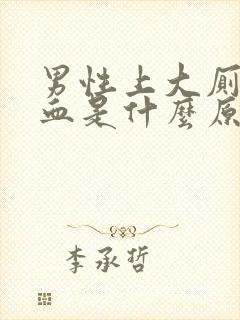 男性上大厕
血是什麼原
李承哲